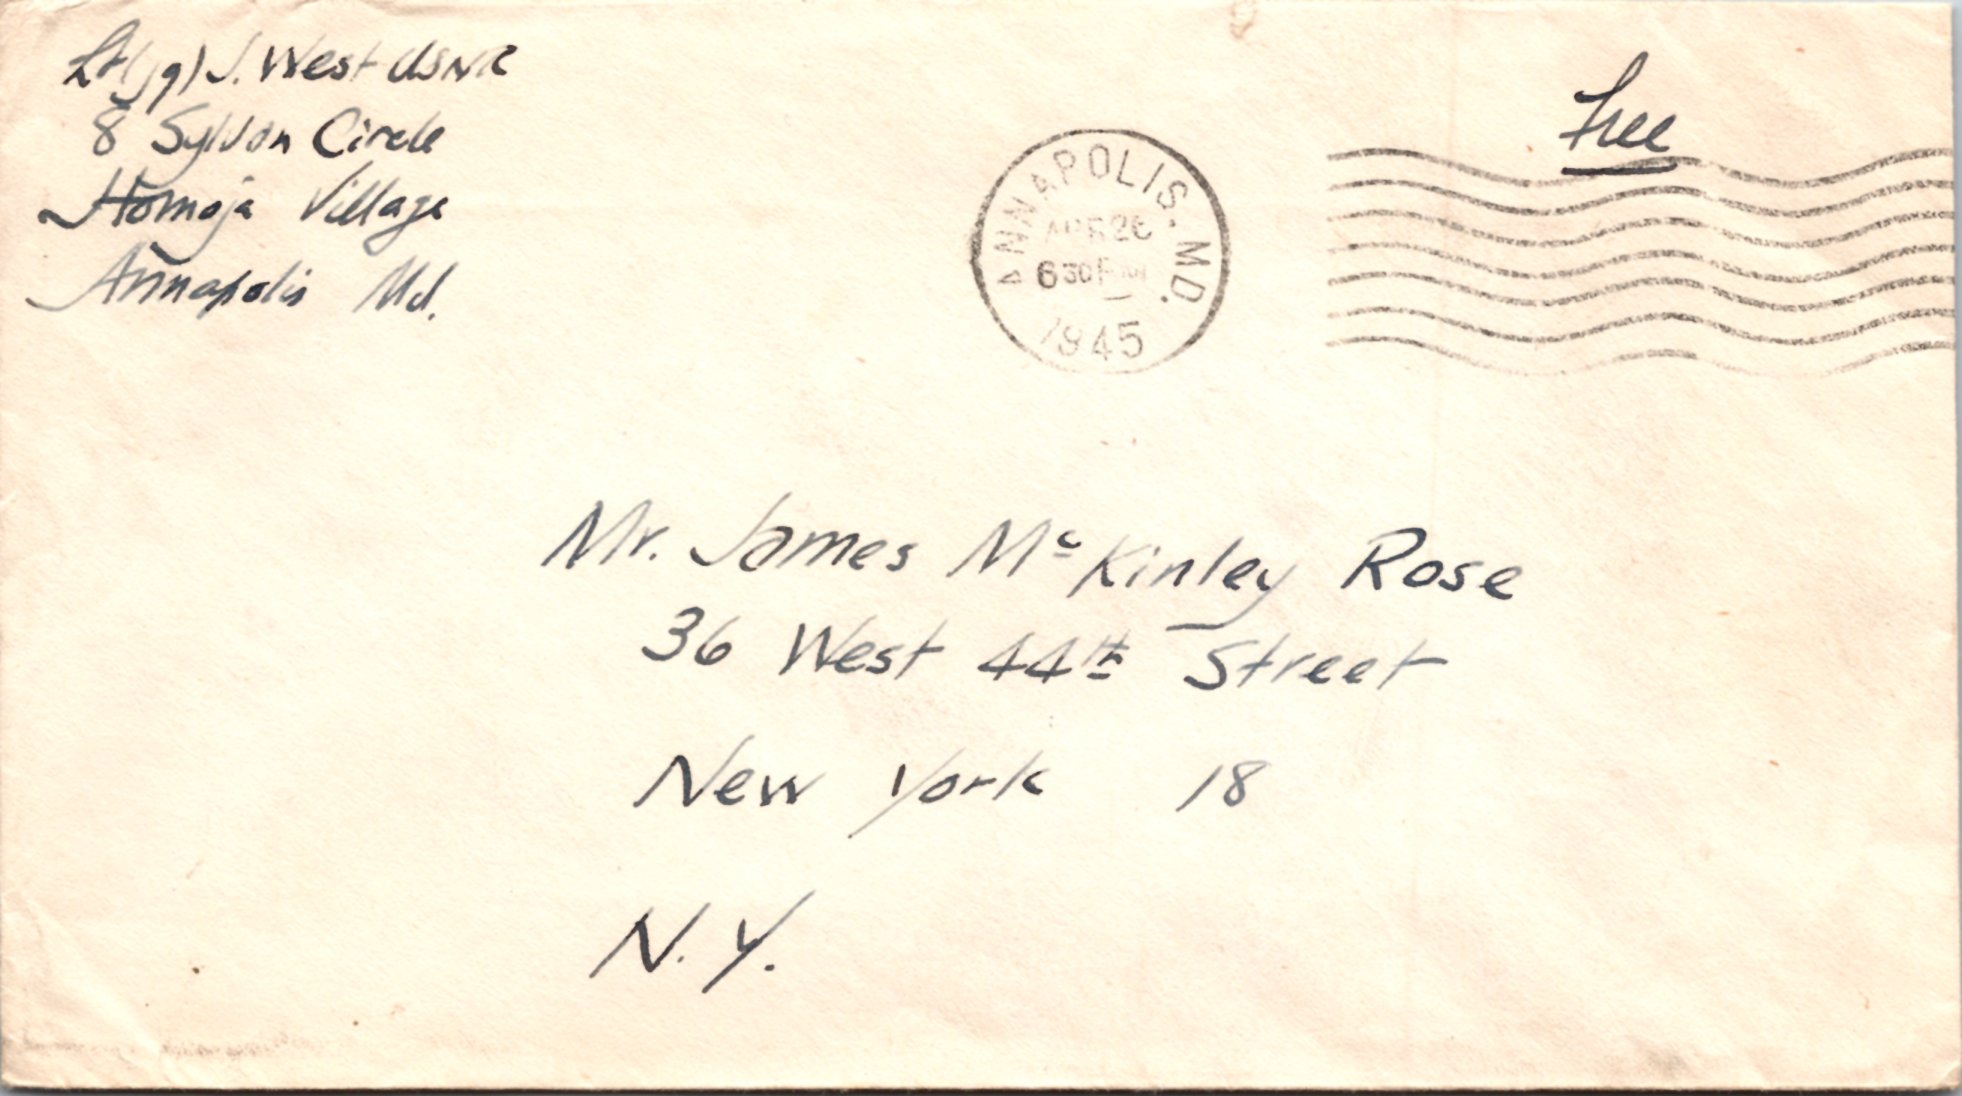 Lt(jg) J. West USNR
8 Sylvan Circle
Homoja Village
Annapolis Md.
Free
ANNAPOLIS, MD.
APR 26
630 PM
1945
Mr. James McKinley Rose
36 West 44th Street
New York 18
N.Y.